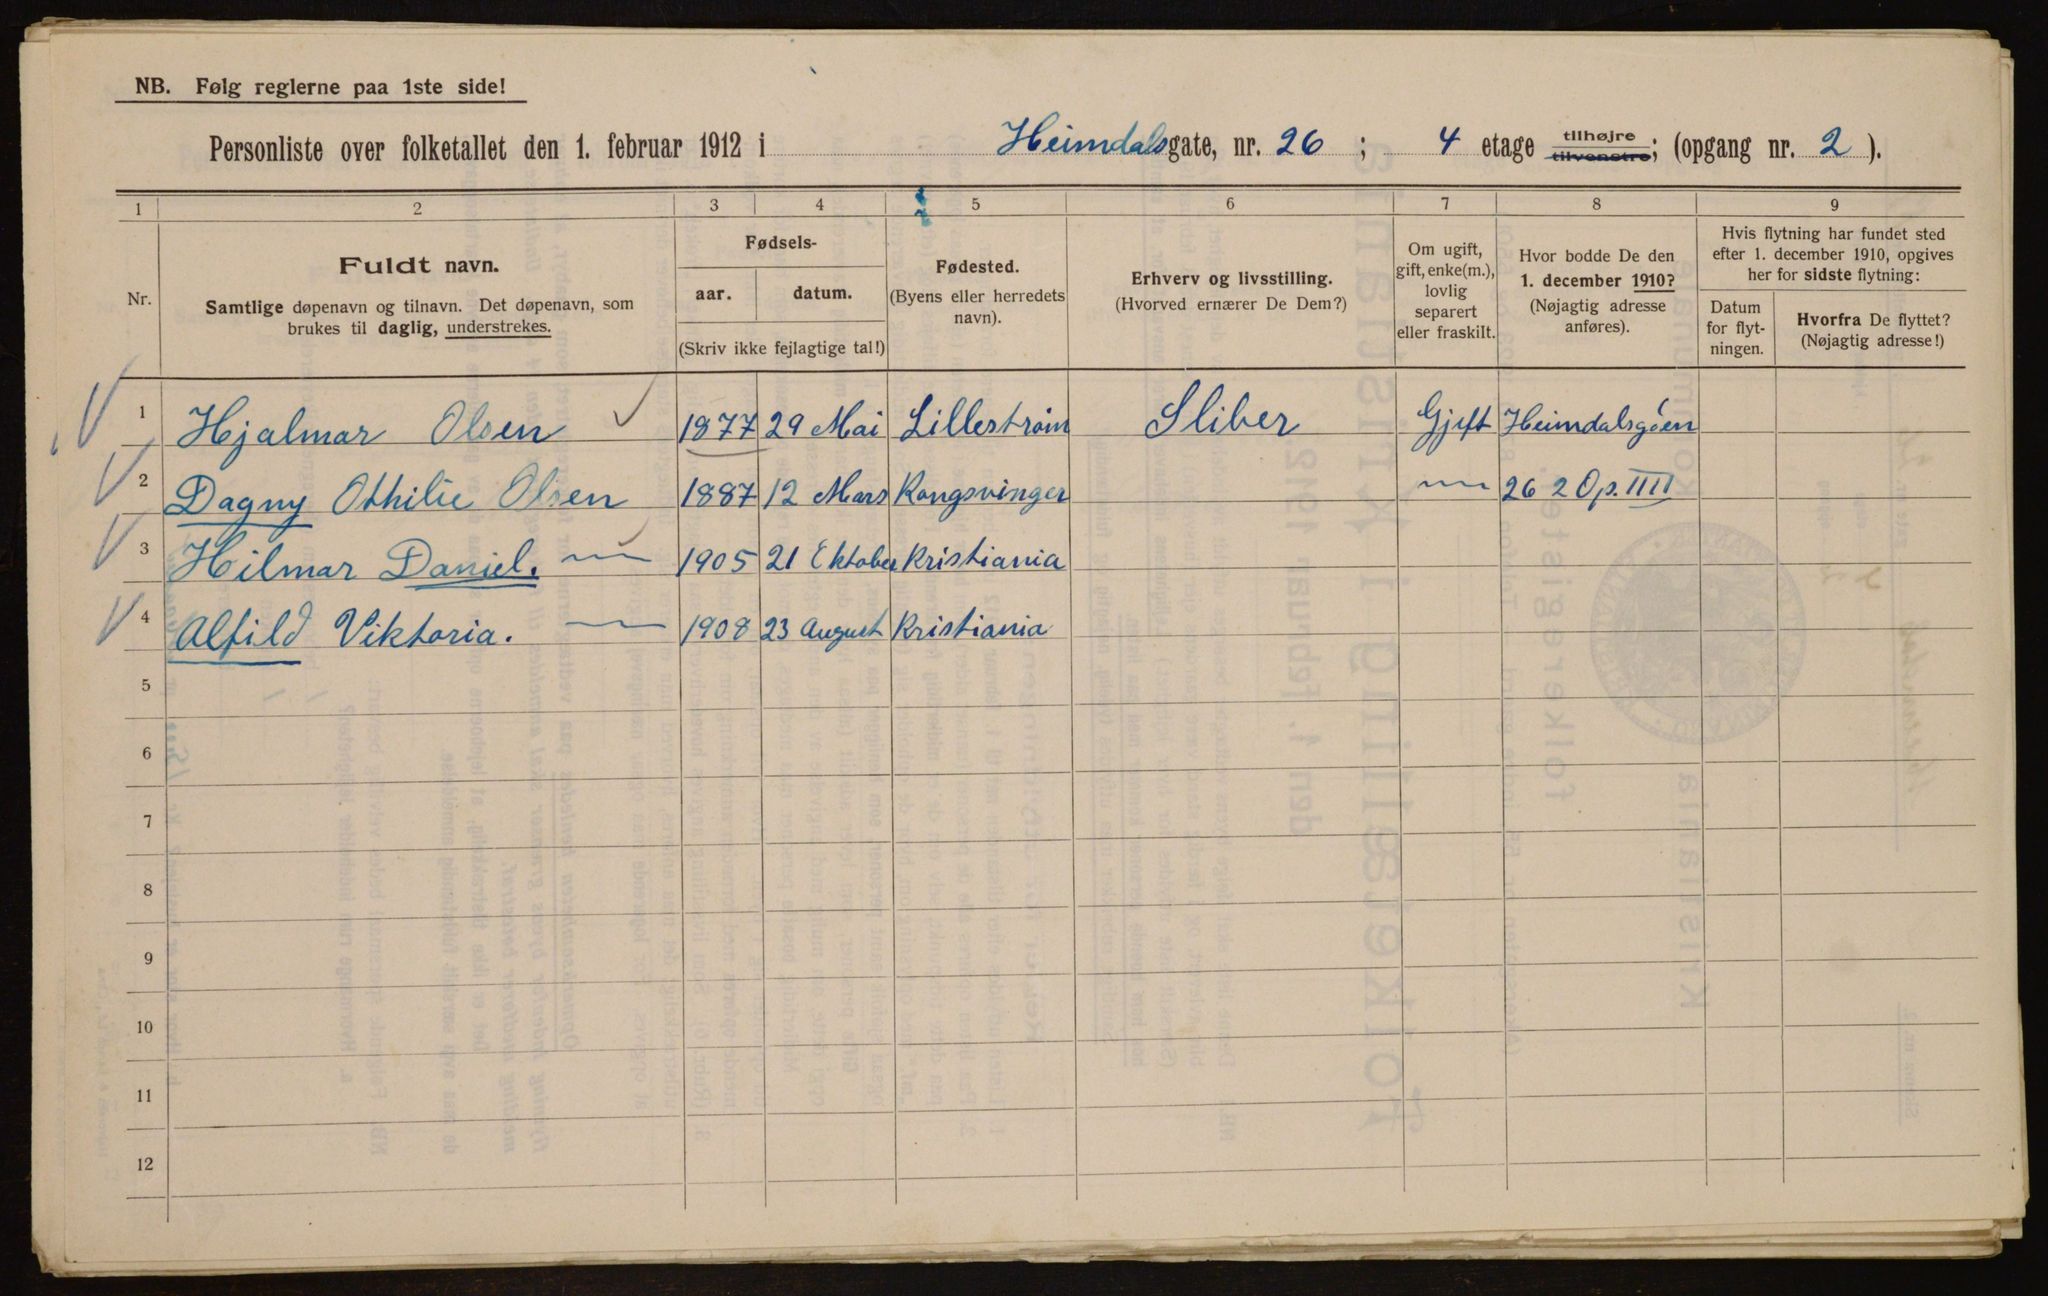 NB. Følg reglerne paa 1ste side!
Personliste over folketallet den 1. februar 1912 i Heimdalsgate, nr. 26 ; 4 etage tilhøjre tilvenstre; (opgang nr. 2 ).
1 2 3 4 5 6 7 8 9
Nr.
Fuldt navn.
Samtlige døpenavn og tilnavn. Det døpenavn, som
brukes til daglig, understrekes.
Fødsels-
aar. datum.
(Skriv ikke fejlagtige tal!)
Fødested.
(Byens eller herredets
navn).
Erhverv og livsstilling.
(Hvorved ernærer De Dem?)
Om ugift,
gift, enke(m.),
lovlig
separert
eller fraskilt.
Hvor bodde De den
1. december 1910?
(Nøjagtig adresse
anføres).
Hvis flytning har fundet sted
efter 1. december 1910, opgives
her for sidste flytning:
Datum
for flyt-
ningen.
Hvorfra De flyttet?
(Nøjagtig adresse!)
1 Hjalmar Olsen 1877 29 Mai Lillestrøm Sliber Gjift Heimdalsgåen
2 Dagny Othilie Olsen 1887 12 Mars Kongsvinger — 26 2 Op. IIII
3 Hilmar Daniel. — 1905 21 Oktober Kristiania
4 Alfild Viktoria. — 1908 23 August Kristiania
5
6
7
8
9
10
11
12